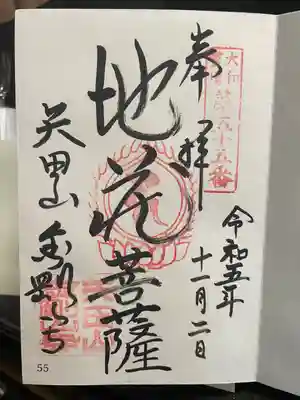 奉拝
大和
十五番
令和五年
十一月二日
地蔵菩薩
矢田山
金剛山寺
55